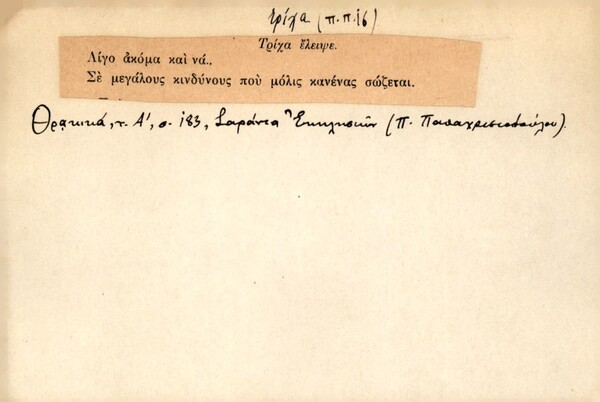 τρίχα (π.π. 16)
Τρίχα ἔλειψε.
Λίγο ἀκόμα καὶ νά..
Σὲ μεγάλους κινδύνους ποὺ μόλις κανένας σώζεται.
Θρᾳκικά, τ. Α', σ. 183, Σαράντα Ἐκκλησιῶν (Π. Παπαχριστοδούλου).